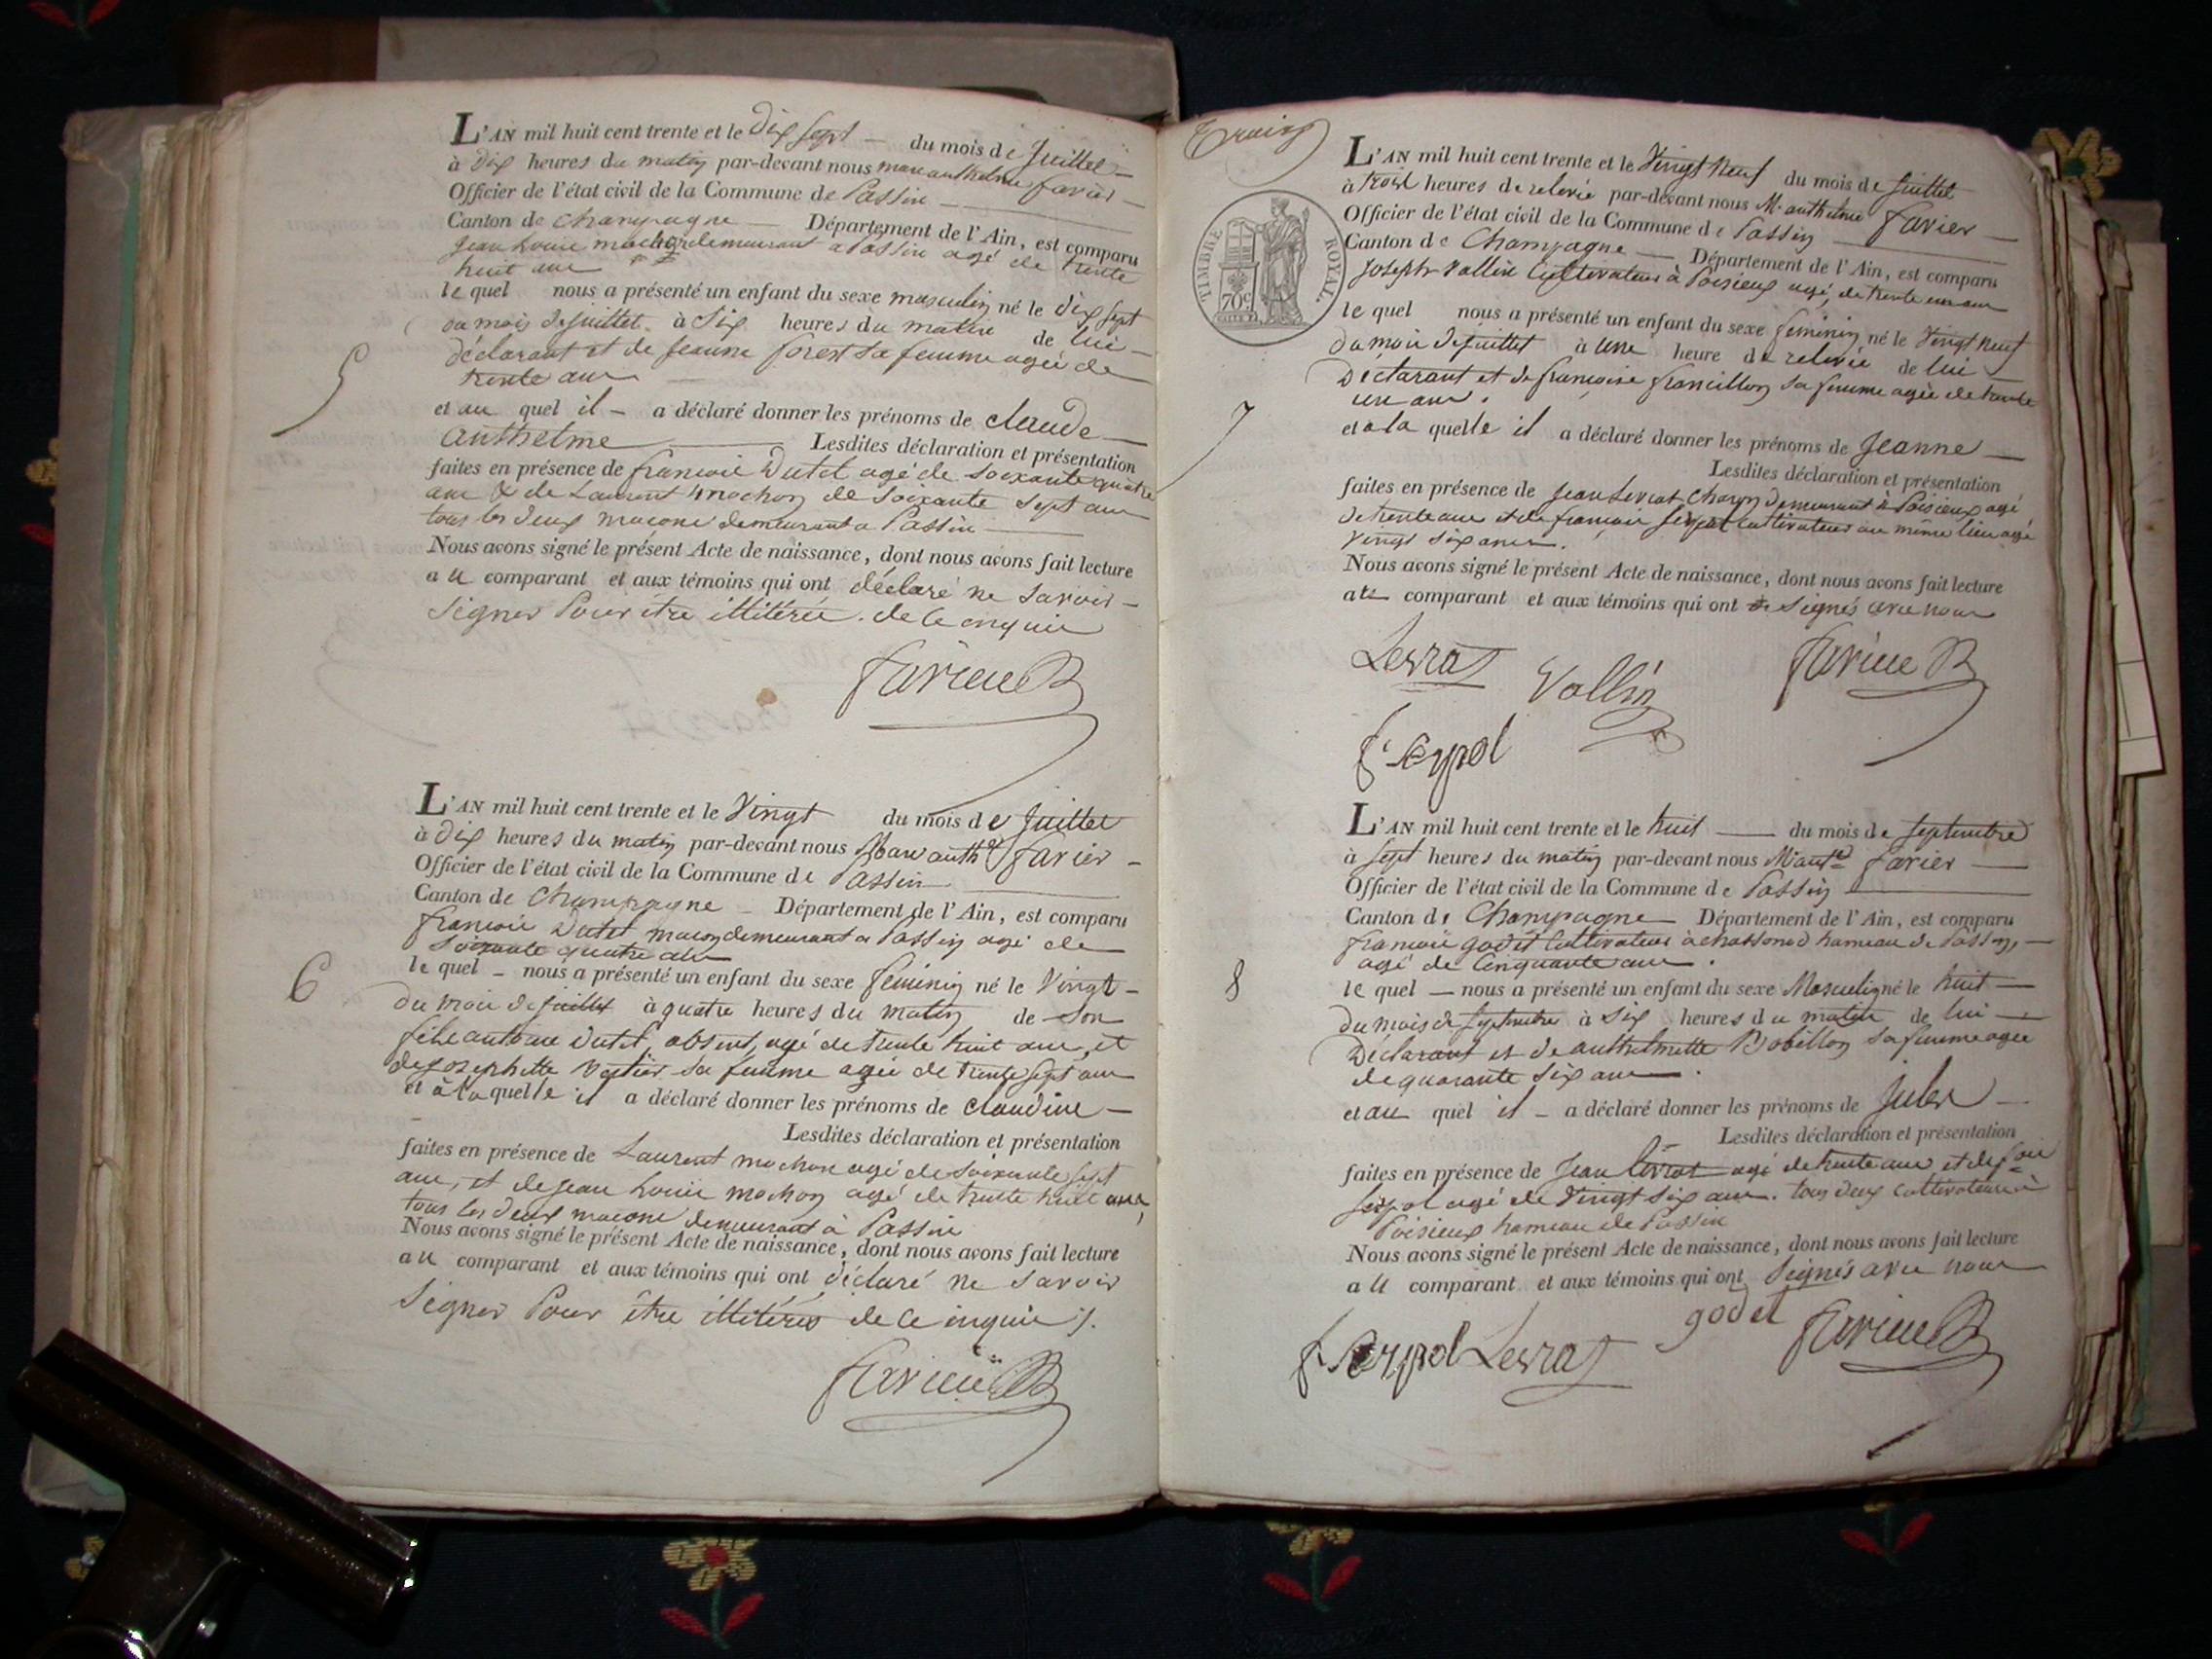 L'AN mil huit cent trente et le Dix sept — du mois de Juillet —
à Dix heures du matin par-devant nous marc anthelme favier —
Officier de l'état civil de la Commune de Passin —
Canton de Champagne — Département de l'Ain, est comparu
Jean Louis mochon demeurant a Passin agé de trente
huit ans
le quel nous a présenté un enfant du sexe masculin né le dix sept
du mois de juillet à Six heures du matin de lui —
déclarant et de Jeanne forest sa femme agée de
trente ans —
5
et au quel il — a déclaré donner les prénoms de claude —
anthelme — Lesdites déclaration et présentation
faites en présence de francois Dutel agé de soixante quatre
ans & de Laurent mochon de soixante sept ans
tous les deux macons demeurant a Passin —
Nous avons signé le présent Acte de naissance, dont nous avons fait lecture
au comparant et aux témoins qui ont déclaré ne savoir —
signer Pour être illitérés. de ce enquis
favier
L'AN mil huit cent trente et le Vingt du mois de Juillet
à Dix heures du matin par-devant nous Marc anthe favier —
Officier de l'état civil de la Commune de Passin —
Canton de Champagne — Département de l'Ain, est comparu
francois Dutel macon demeurant a Passin agé de
soixante quatre ans
6
le quel — nous a présenté un enfant du sexe feminin né le Vingt —
du mois de juillet à quatre heures du matin de son
fils antoine Dutel, absent, agé de trente huit ans, et
de josephette sa femme agée de trente sept ans
et à la quelle il a déclaré donner les prénoms de claudine —
Lesdites déclaration et présentation
faites en présence de Laurent mochon agé de soixante sept
ans, et de jean Louis mochon agé de trente huit ans,
tous les deux macons demeurant à Passin
Nous avons signé le présent Acte de naissance, dont nous avons fait lecture
au comparant et aux témoins qui ont déclaré ne savoir
signer Pour être illitérés de ce enquis /.
favier
TIMBRE ROYAL.
70c
L'AN mil huit cent trente et le Vingt neuf du mois de juillet
à trois heures de relevée par-devant nous M. anthelme favier —
Officier de l'état civil de la Commune de Passin —
Canton de Champagne — Département de l'Ain, est comparu
Joseph Vallin Cultivateur à Poisieux agé, de trente un ans
le quel nous a présenté un enfant du sexe feminin né le Vingt neuf
du mois de juillet à une heure de relevée de lui —
Déclarant et de françoise francillon sa femme agée de trente
un ans.
7
et à la quelle il a déclaré donner les prénoms de Jeanne —
Lesdites déclaration et présentation
faites en présence de Jean Levrat demeurant à Poisieux agé
de trente ans et de françois serpol cultivateur au même lieu agé
vingt six ans.
Nous avons signé le présent Acte de naissance, dont nous avons fait lecture
au comparant et aux témoins qui ont signés avec nous
Levrat Vallin favier
f. Serpol
L'AN mil huit cent trente et le huit — du mois de septembre
à sept heures du matin par-devant nous M. anthe favier —
Officier de l'état civil de la Commune de Passin —
Canton de Champagne — Département de l'Ain, est comparu
françois godet Cultivateur à hameau de Passin, —
agé de Cinquante ans.
8
le quel — nous a présenté un enfant du sexe Masculin né le huit —
du mois de septembre à six heures du matin de lui —
Déclarant et de anthelmette Bobillon sa femme agée
de quarante six ans —.
et au quel il — a déclaré donner les prénoms de Jules —
Lesdites déclaration et présentation
faites en présence de Jean Levrat agé de trente ans et de fois
serpol agé de Vingt six ans. tous deux cultivateurs à
Poisieux hameau de Passin
Nous avons signé le présent Acte de naissance, dont nous avons fait lecture
au comparant et aux témoins qui ont Signés avec nous
f. Serpol Levrat godet favier